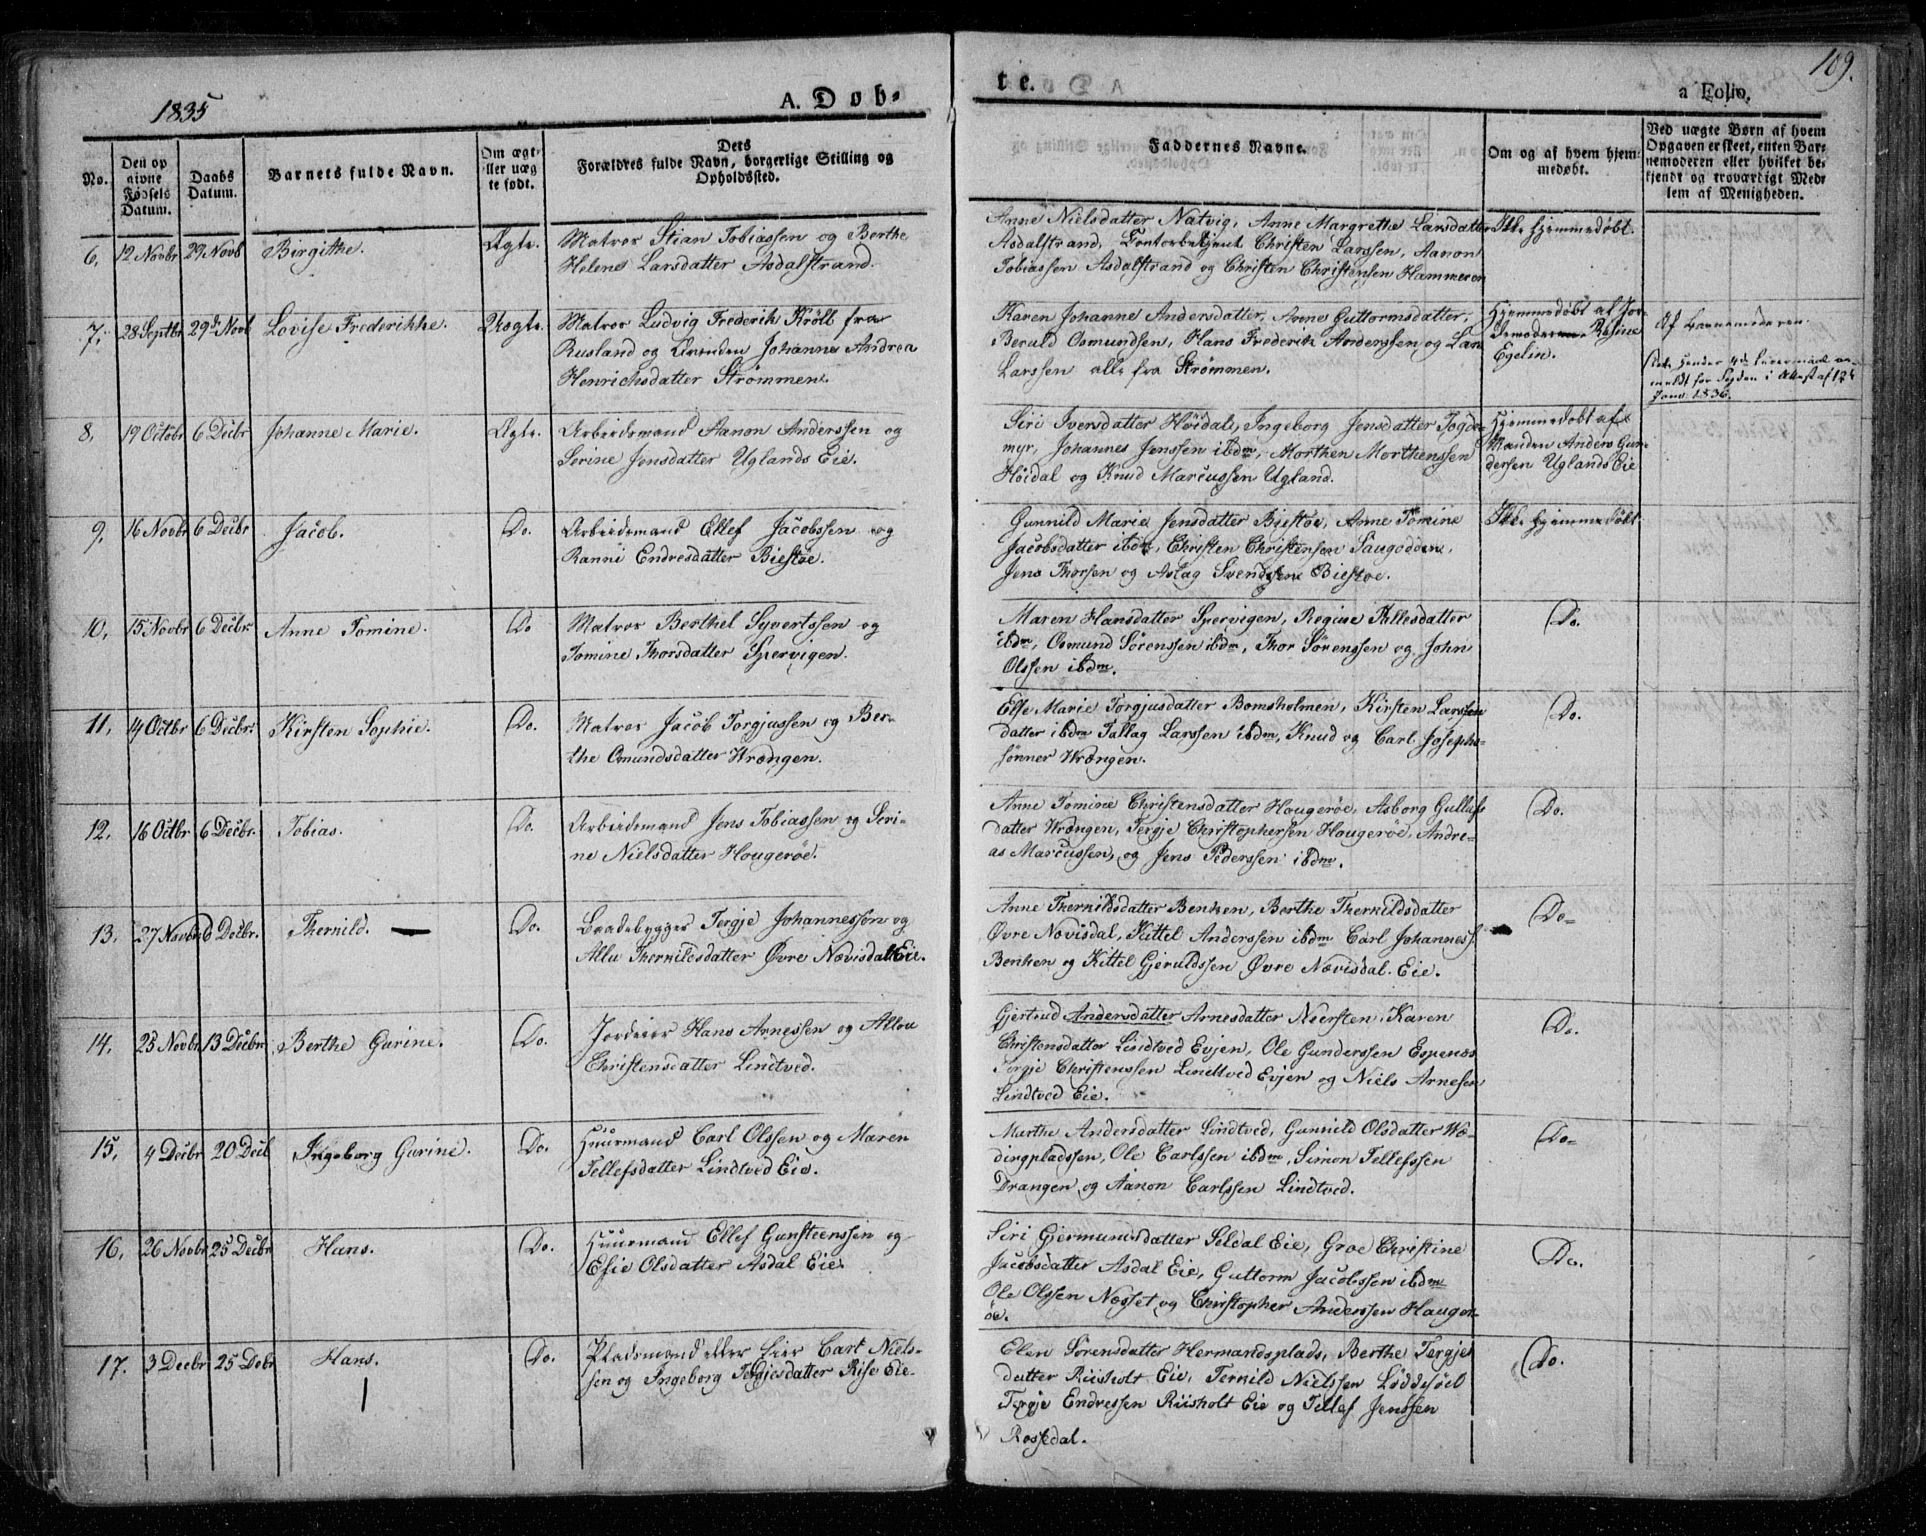 109.
1835
A. Døb-
te.
a Folio.
No.
Den op
givne
Fødsels
Datum.
Daabs
Datum.
Barnets fulde Navn.
Om ægt-
eller uæg
te født.
Dets
Forældres fulde Navn, borgerlige Stilling og
Opholdssted.
Faddernes Navne.
Om og af hvem hjem-
medøbt.
Ved uægte Børn af hvem
Opgaven er skeet, enten Bar-
nemoderen eller hvilket be-
kjendt og troværdigt Med-
lem af Menigheden.
6, 12 Novbr 29 Novb Birgithe. Ægte. Matros Stian Tobiassen og Berthe
Helene Larsdatter Asdalstrand.
Anne Nielsdatter Natvig, Anne Margrethe Larsdatter
Asdalstrand, Contorbetjent Christen Larssen, Aanon
Tobiassen Asdalstrand og Christen Christensen Hammeren
Ikke hjemmedøbt.
7, 28 Septbr 29de Novb Lovise Frederikke. Uægte. Matros Ludvig Frederik Kröll fra
Rusland og Qvinden Johanne Andrea
Henrichsdatter Strømmen.
Karen Johanne Andersdatter, Anne Guttormsdatter,
Beruld Osmundsen, Hans Frederik Anderssen og Lars
Larssen alle fra Strømmen.
Hjemmedøbt af Jor-
demoderen Rosine
Egelin.
Af Barnemoderen
8, 19 Octobr 6 Decbr Johanne Marie. Ægte. Arbeidsmand Aanon Anderssen og
Serine Jensdatter Uglands Eie.
Siri Iversdatter Höidal, Ingeborg Jensdatter Togde-
myr, Johannes Jenssen ibdm, Morthen Morthenssen
Höidal og Knud Marcussen Ugland.
Hjemmedøbt af
Manden Anders Gun-
dersen Uglands Eie
9, 16 Novbr 6 Decbr Jacob. Do. Arbeidsmand Ellef Jacobssen og
Ranni Endresdatter Biestøe.
Gunnild Marie Jensdatter Biestøe, Anne Tomine
Jacobsdatter ibdm, Christen Christensen Saugodden,
Jens Thorsen og Aslag Svendssen Biestøe.
Ikke hjemmedøbt.
10, 15 Novbr 6 Decbr. Anne Tomine. Do Matros Berthel Syvertssen og
Tomine Thorsdatter Spervigen.
Maren Hansdatter Spervigen, Regine Killesdatter
ibdm, Osmund Sörenssen ibdm, Thor Sörenssen og John
Olssen ibdm.
Do.
11, 14 Octbr 6 Decbr. Kirsten Sophie. Do. Matros Jacob Torgjussen og Ber-
the Omundsdatter Wrængen.
Else Marie Torgjusdatter Bomsholmen, Kirsten Larssen
datter ibdm Tallag Larssen ibdm, Knud og Carl Josephs-
sønner Wrængen.
Do.
12, 16 Octbr 6 Decbr. Tobias. Do. Arbeidsmand Jens Tobiassen og Seri-
ne Nielsdatter Hougerøe.
Anne Tomine Christensdatter Hougerøe, Asborg Gullufs
datter Wrængen, Tergje Christophersen Hougerøe, Andre-
as Marcussen, og Jens Pederssen ibdm.
Do.
13, 27 Novbr 6 Decbr. Thernild. Do. Baadebygger Tergje Johannessen og
Allu Thernildsdatter Øvre Nævisdal Eie.
Anne Thernildsdatter Benken, Berthe Thernildsdatter
Øvre Nævisdal, Kittel Anderssen ibdm Carl Johanness.
Benken og Kittel Gjeruldssen Øvre Nævisdal Eie.
Do-
14, 23 Novbr 13 Decbr Berthe Gurine. Do. Jordeier Hans Arnessen og Allou
Christensdatter Lindtved.
Gjertrud Andersdatter Arnesdatter Neersten, Karen
Christensdatter Lindtved Evjen, Ole Gunderssen Espenæs
Tergje Christenssen Lindtved Evjen og Niels Arnesen
Lindtved Eie.
Do.
15, 4 Decbr 20 Decb Ingeborg Gurine. Do. Huurmand Carl Olssen og Maren
Tellefsdatter Lindtved Eie.
Marthe Andersdatter Lindtved, Gunnild Olsdatter Wæ-
dingpladssen, Ole Carlssen ibdm, Simon Tellefssen
Drangen og Aanon Carlssen Lindtved.
Do-
16, 26 Novbr 25 Decbr Hans. Do. Huurmand Ellef Gunsteenssen og
Esie Olsdatter Asdal Eie.
Siri Gjermundsdatter Seldal Eie, Groe Christine
Jacobsdatter Asdal Eie, Guttorm Jacobssen ibdm
Ole Olssen Næsset og Christopher Anderssen Hauger-
øe.
Do.
17. 3 Decbr 25 Debr Hans. Do. Pladsmand eller Eier Carl Niels-
sen og Ingeborg Tergjesdatter Rise Eie.
Elen Sørensdatter Hermandsplads, Berthe Tergje
datter Riisholt Eie, Ternild Nielssen Løddesöel
Tergje Endressen Riisholt Eie og Tellef Jenssen
Rossedal.
Do.